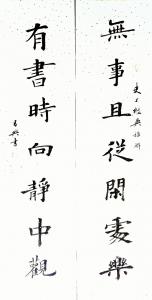 無事且從閑處樂
有書時向靜中觀